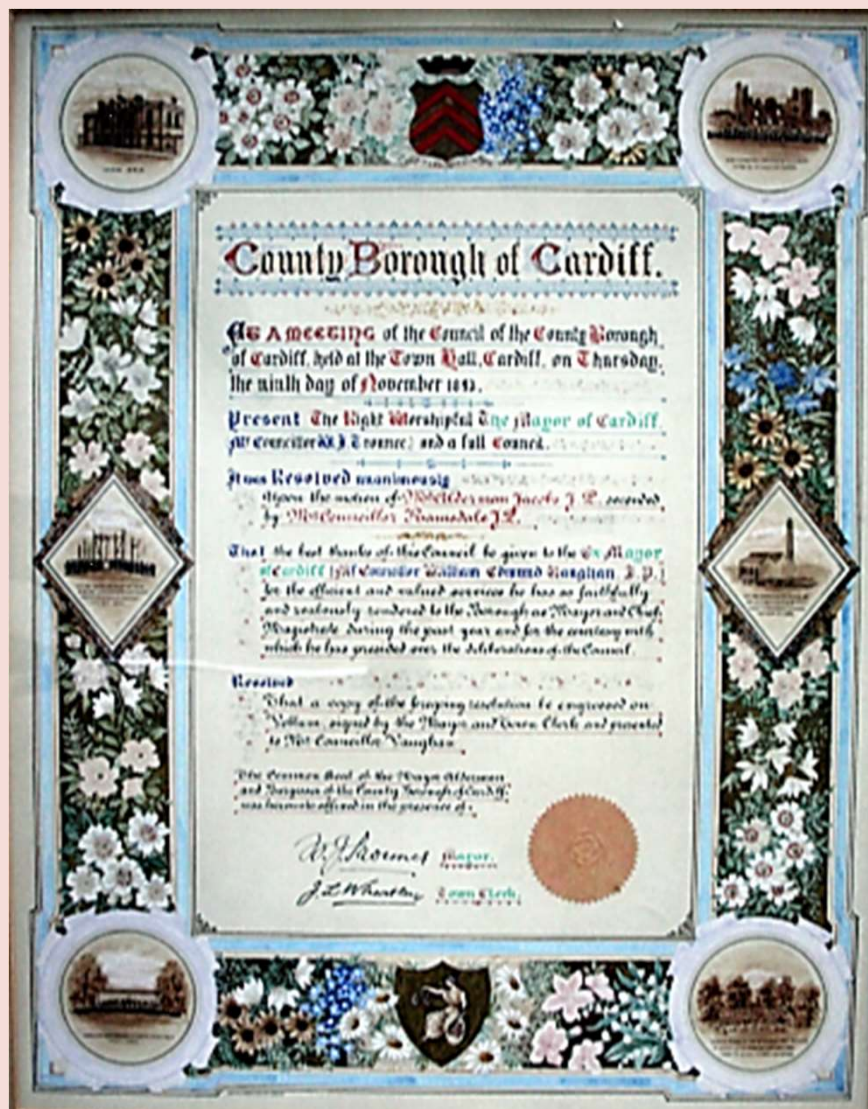 County Borough of Cardiff.
At A MEETING of the Council of the County Borough
of Cardiff, held at the Town Hall, Cardiff, on Thursday,
the ninth day of November 1893.
Present The Right Worshipful The Mayor of Cardiff
Mr Councillor W. J. Trounce) and a full Council.
It was Resolved unanimously
Upon the motion of Mr Alderman Jacobs J. P. seconded
by Mr Councillor Ramsdale J.P.
That the best thanks of this Council be given to the Ex Mayor
of Cardiff (Mr Councillor William Edmund Vaughan, J. P.)
for the efficient and valued services he has so faithfully
and zealously rendered to the Borough as Mayor and Chief
Magistrate during the past year and for the courtesy with
which he has presided over the deliberations of the Council.
Resolved
That a copy of the foregoing resolution be engrossed on
Vellum, signed by the Mayor and Town Clerk and presented
to Mr Councillor Vaughan
The Common Seal of the Mayor Aldermen
and Burgesses of the County Borough of Cardiff
was hereunto affixed in the presence of.
W. J. Trounce Mayor.
J. L. Wheatley Town Clerk.